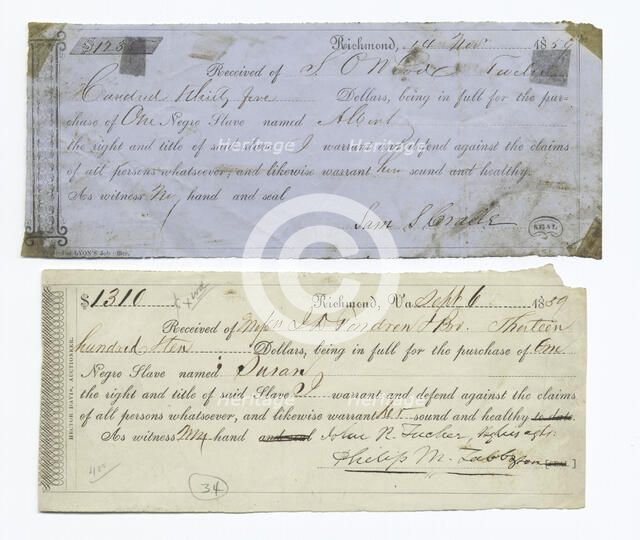 $1235
Richmond, 14 Nov 1859
Received of S. O. Wood Twelve
Hundred thirty five Dollars, being in full for the pur-
chase of One Negro Slave named Albert
the right and title of said slave I warrant and defend against the claims
of all persons whatsoever, and likewise warrant him sound and healthy.
As witness My hand and seal
Sam S.
SEAL
LYON'S Job Office.
$1310
Richmond, Va Sept 6 1859
Received of Messrs Thirteen
hundred & ten Dollars, being in full for the purchase of One
Negro Slave named Susan
the right and title of said Slave I warrant and defend against the claims
of all persons whatsoever, and likewise warrant her sound and healthy to date
As witness My hand and seal John R. Tucker,
Philip M. Tabb & Son
HECTOR DAVIS, AUCTIONEER.
34
Heritage
Heritage
Heritage
Heritage